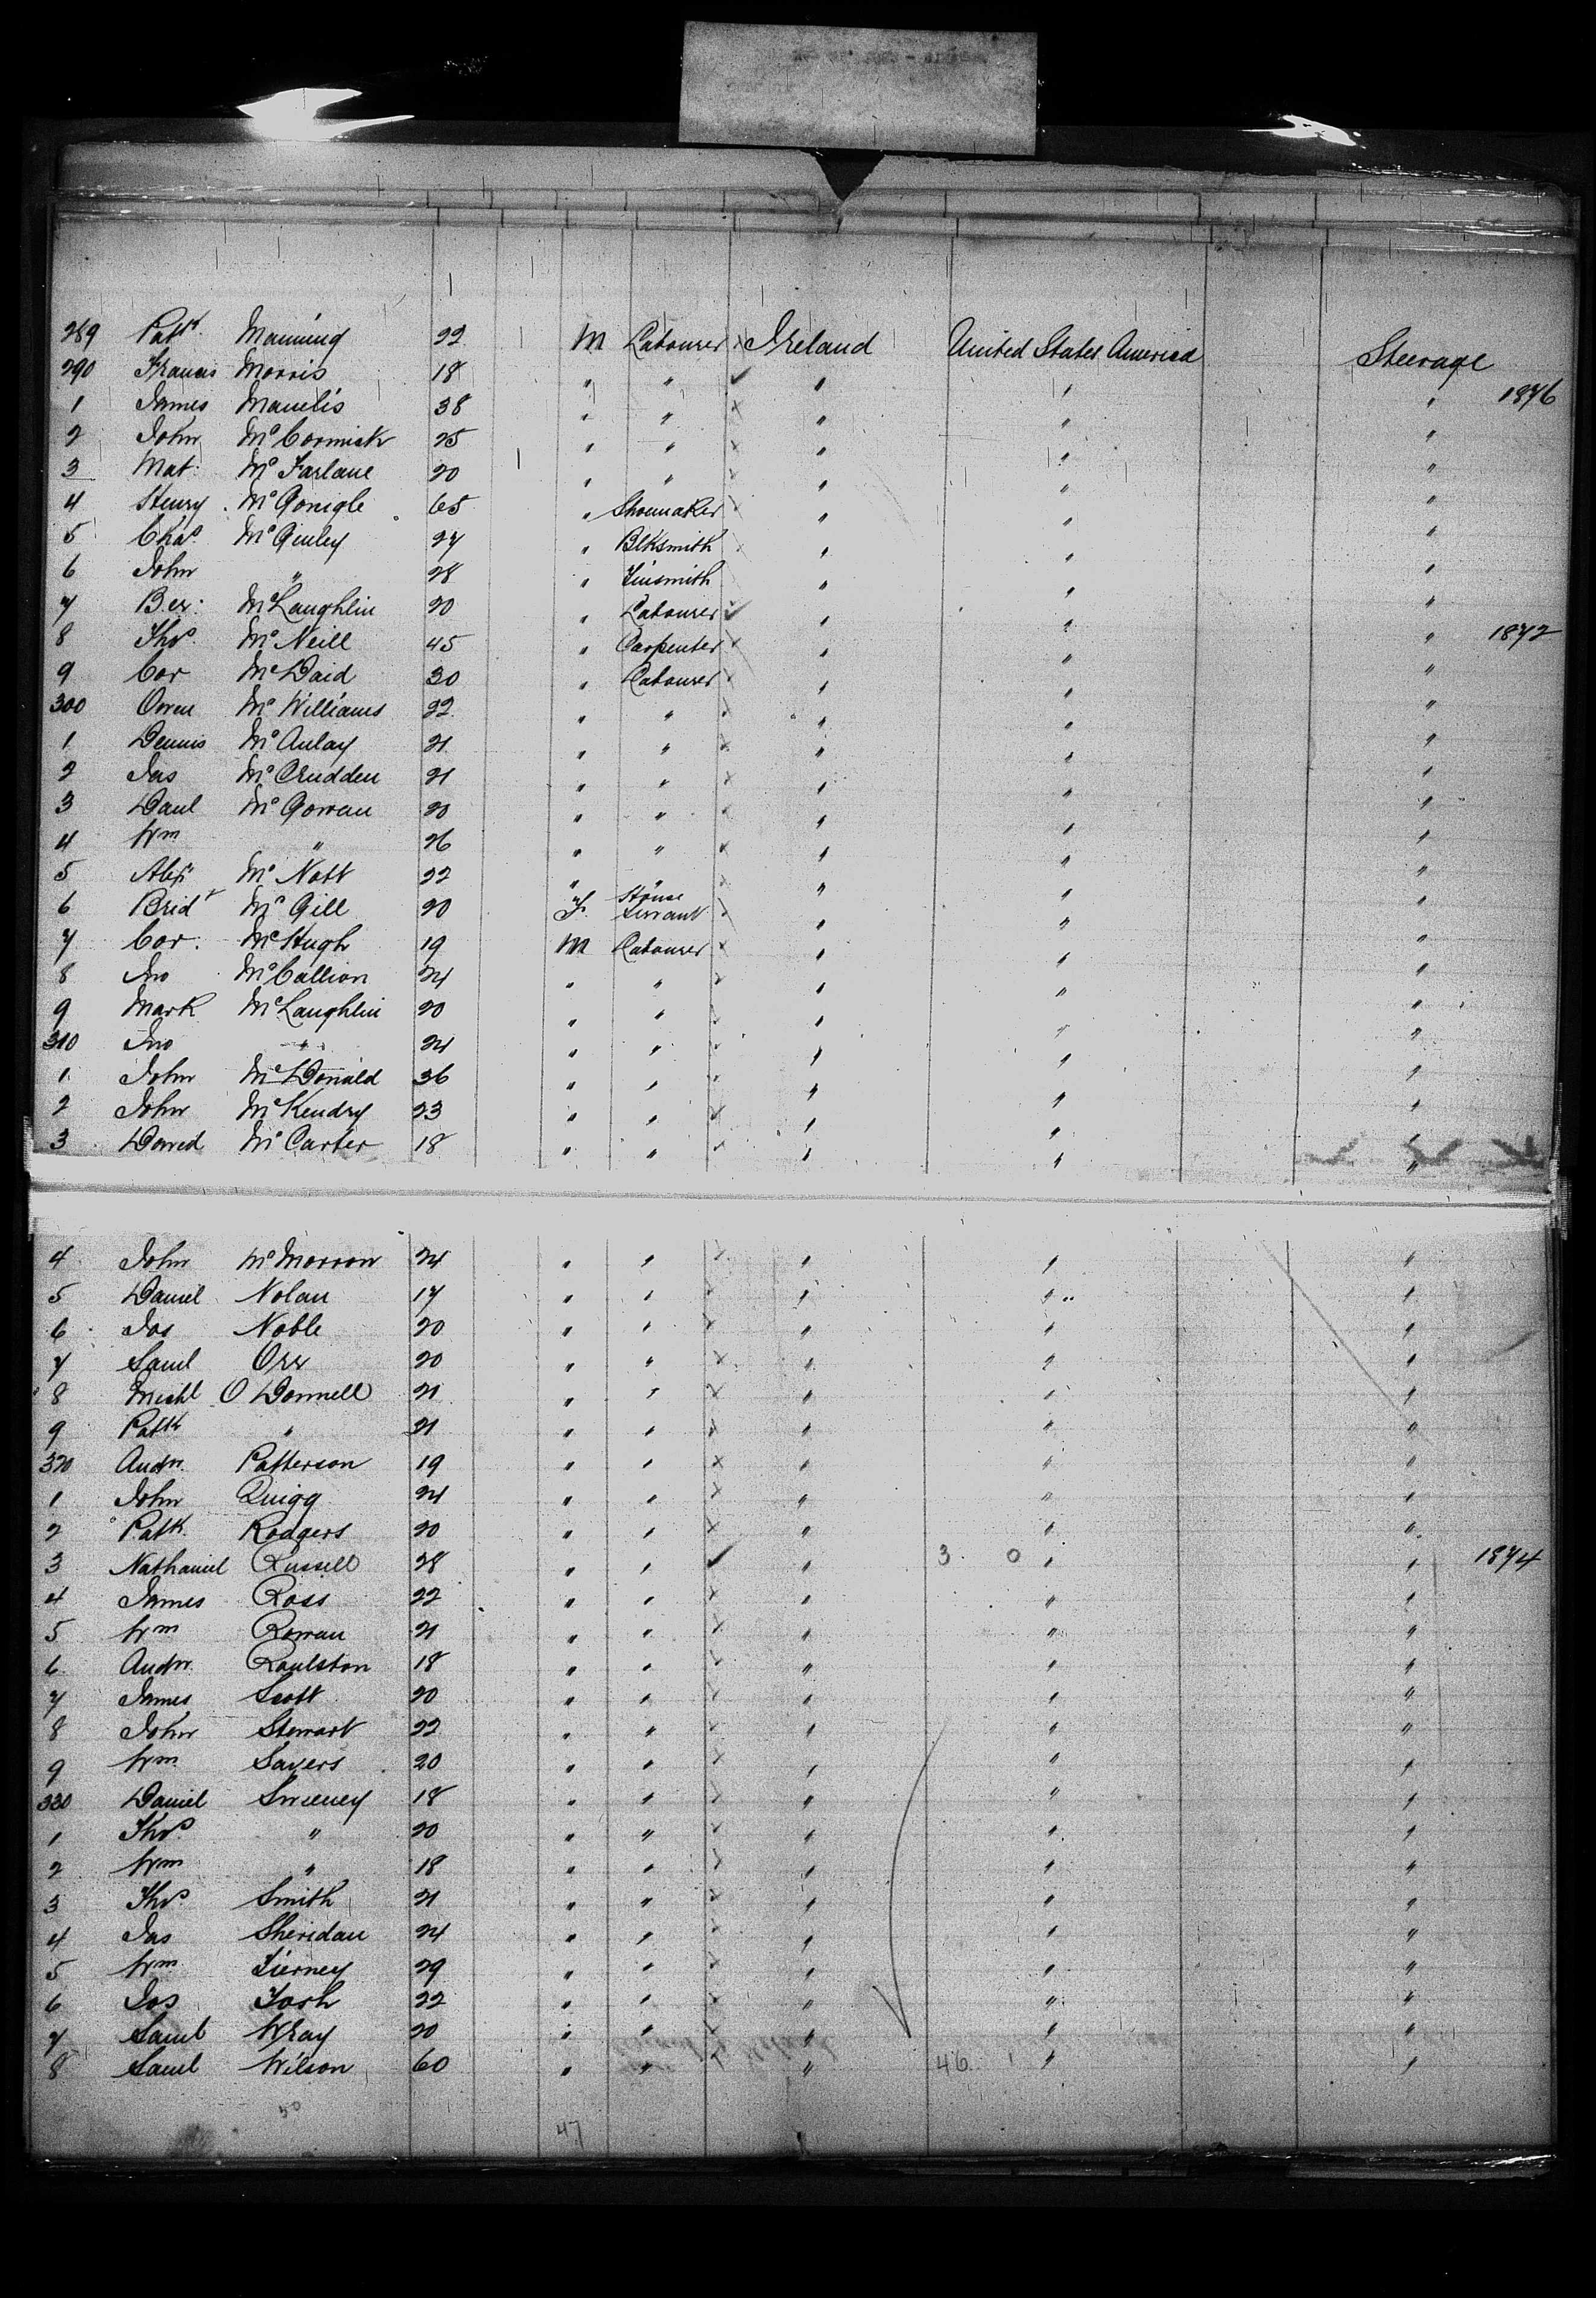 289 Patk Manning 22 M Labourer x Ireland United States America Steerage
290 Francis Morris 18 " " ✓ " " " 1876
1 James Manelis 38 " " x " " "
2 John McCormick 25 " " x " " "
3 Mat: McFarlane 20 " " x " " "
4 Henry McGonigle 65 " Shoemaker " " "
5 Chas McGinley 27 " Blksmith " " "
6 John " 28 " Tinsmith " " "
7 Ber: McLaughlin 20 " Labourer ✓ " " "
8 Thos McNeill 45 " Carpenter x " " " 1872
9 Cor McDaid 30 " Labourer x " " "
300 Owen McWilliams 22 " " x " " "
1 Dennis McAulay 21 " " x " " "
2 Jas McCrudden 21 " " x " " "
3 Danl McGowan 20 " " x " " "
4 Wm " 26 " " x " " "
5 Alexr McNatt 22 " " x " " "
6 Bridt McGill 20 F. House Servant x " " "
7 Cor. McHugh 19 M Labourer x " " "
8 Jno McCallion 24 " " x " " "
9 Mark McLaughlin 20 " " x " " "
310 Jno " 24 " " x " " "
1 John McDonald 36 " " x " " "
2 John McKendry 23 " " x " " "
3 David McCarter 18 " " x " " "
4 John McMorrow 24 " " x " " "
5 Daniel Nolan 17 " " x " " "
6 Jos Noble 20 " " x " " "
7 Saml Orr 20 " " x " " "
8 Michl O Donnell 21 " " x " " "
9 Patk " 21 " " x " " "
320 Andw Patterson 19 " " x " " "
1 John Quigg 24 " " x " " "
2 Patk Rodgers 20 " " x " " "
3 Nathaniel Russell 28 " " ✓ " 3 0 " " 1874
4 James Ross 22 " " x " " "
5 Wm Rowan 21 " " x " " "
6 Andw Raulston 18 " " x " " "
7 James Scott 20 " " x " " "
8 John Stewart 22 " " x " " "
9 Wm Sayers 20 " " x " " "
330 Daniel Sweeney 18 " " x " " "
1 Thos " 20 " " x " " "
2 Wm " 18 " " x " " "
3 Thos Smith 21 " " x " " "
4 Jas Sheridan 24 " " x " " "
5 Wm Tierney 29 " " x " " "
6 Jos Tosh 22 " " x " " "
7 Saml Wray 20 " " x " " "
8 Saml Wilson 60 " " x " 46 " "
50 47